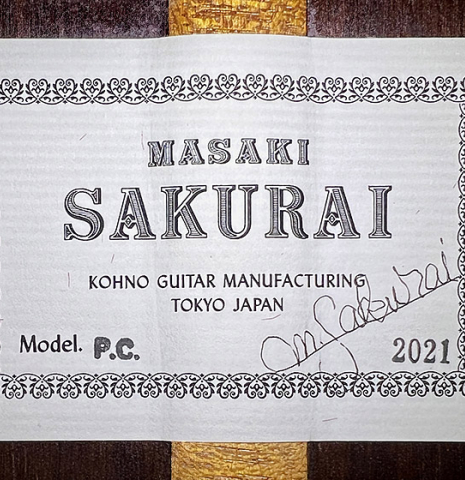 MASAKI
SAKURAI
KOHNO GUITAR MANUFACTURING
TOKYO JAPAN
M. Sakurai
Model. P.C.
2021